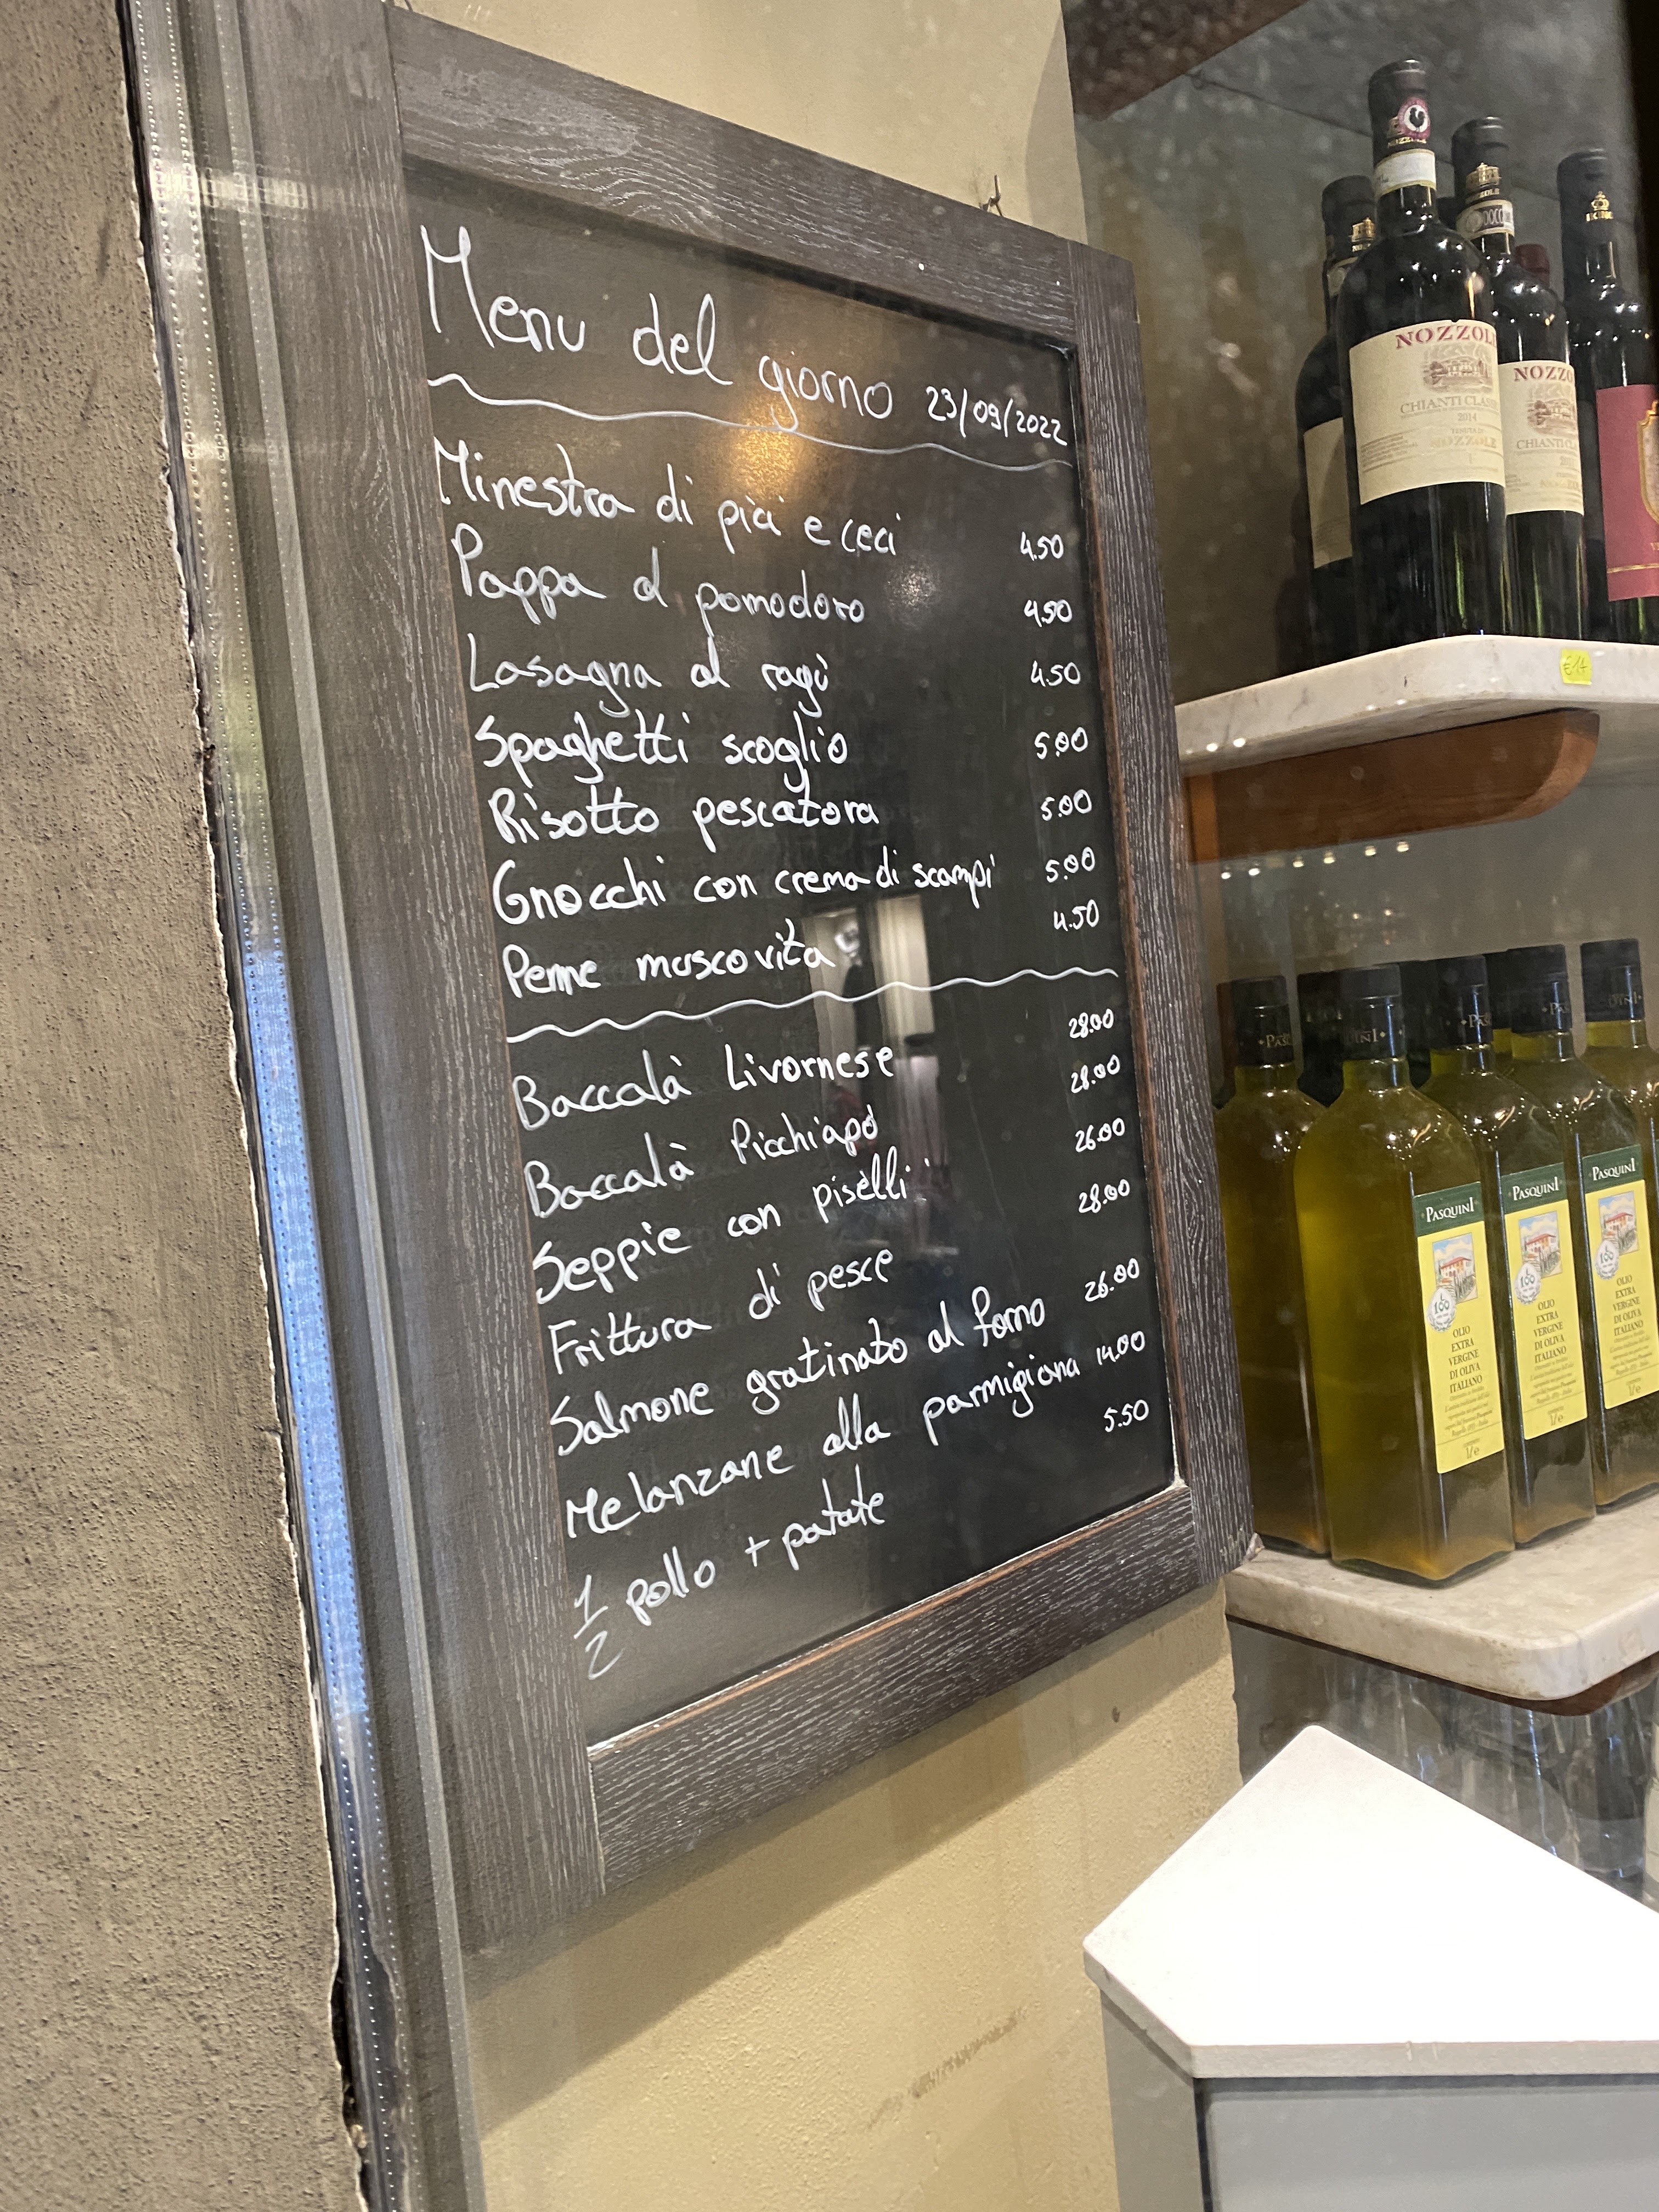 Menu del giorno 23/09/2022
Minestra di pici e ceci 4.50
Pappa al pomodoro 4.50
Lasagna al ragù 4.50
Spaghetti scoglio 5.00
Risotto pescatora 5.00
Gnocchi con crema di scampi 5.00
Penne moscovita 4.50
Baccalà Livornese 28.00
Baccalà Picchiapò 28.00
Seppie con piselli 26.00
Frittura di pesce 28.00
Salmone gratinato al forno 26.00
Melanzane alla parmigiana 14.00
1/2 pollo + patate 5.50
NOZZOLE
CHIANTI CLASS
2014
NOZZOLE
NOZZO
CHIANTI CL
€17
PASQUINI
OLIO
EXTRA
VERGINE
DI OLIVA
ITALIANO
1 l e
PASQUINI
OLIO
EXTRA
VERGINE
DI OLIVA
ITALIANO
1 l e
PASQUINI
OLIO
EXTRA
VERGINE
DI OLIVA
ITALIANO
1 l e